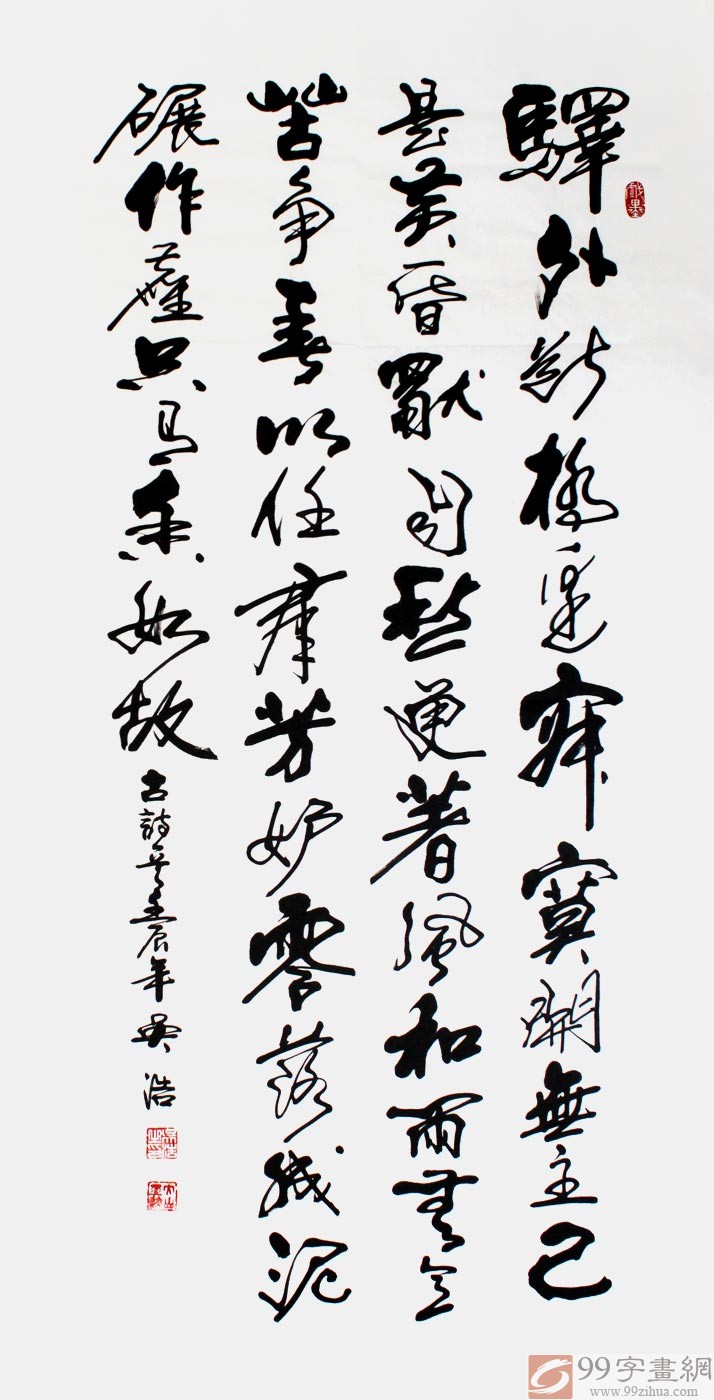 戲墨
驛外斷橋邊寂寞開無主已
是黃昏獨自愁更著風和雨無意
苦爭春以任群芳妒零落成泥
碾作塵只有香如故
古詩一首壬辰年吳浩
99字畫網
www.99zihua.com